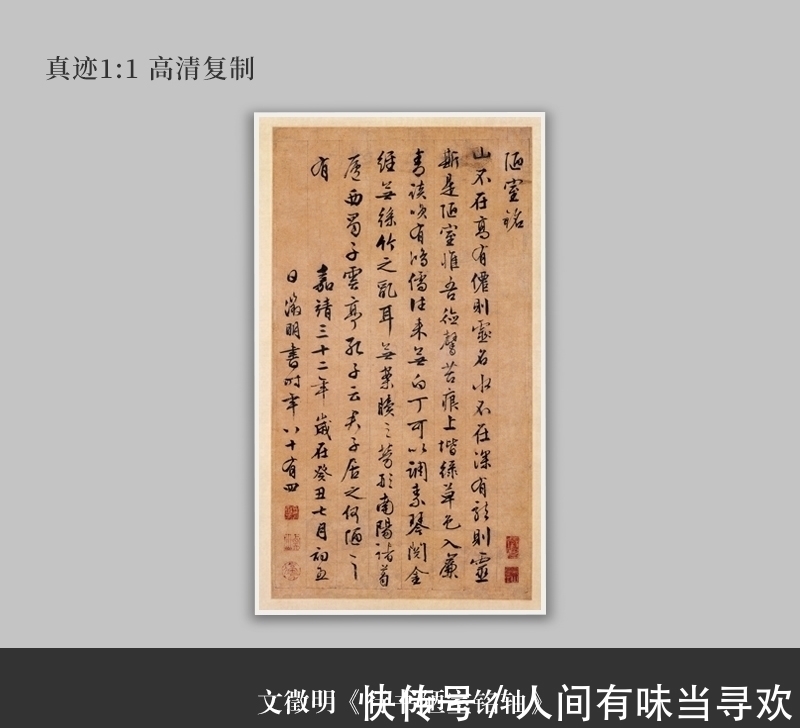 真迹1:1 高清复制
陋室銘
山不在高有僊則靈名水不在深有龍則靈
斯是陋室惟吾德馨苔痕上堦綠草色入簾
青談咲有鴻儒往來無白丁可以調素琴閱金
經無絲竹之亂耳無案牘之勞形南陽諸葛
廬西蜀子雲亭孔子云君子居之何陋之
有
嘉靖三十二年歲在癸丑七月初五
日徵明書時年八十有四
文徵明《陋室铭轴》
快传号 / 人间有味当寻欢